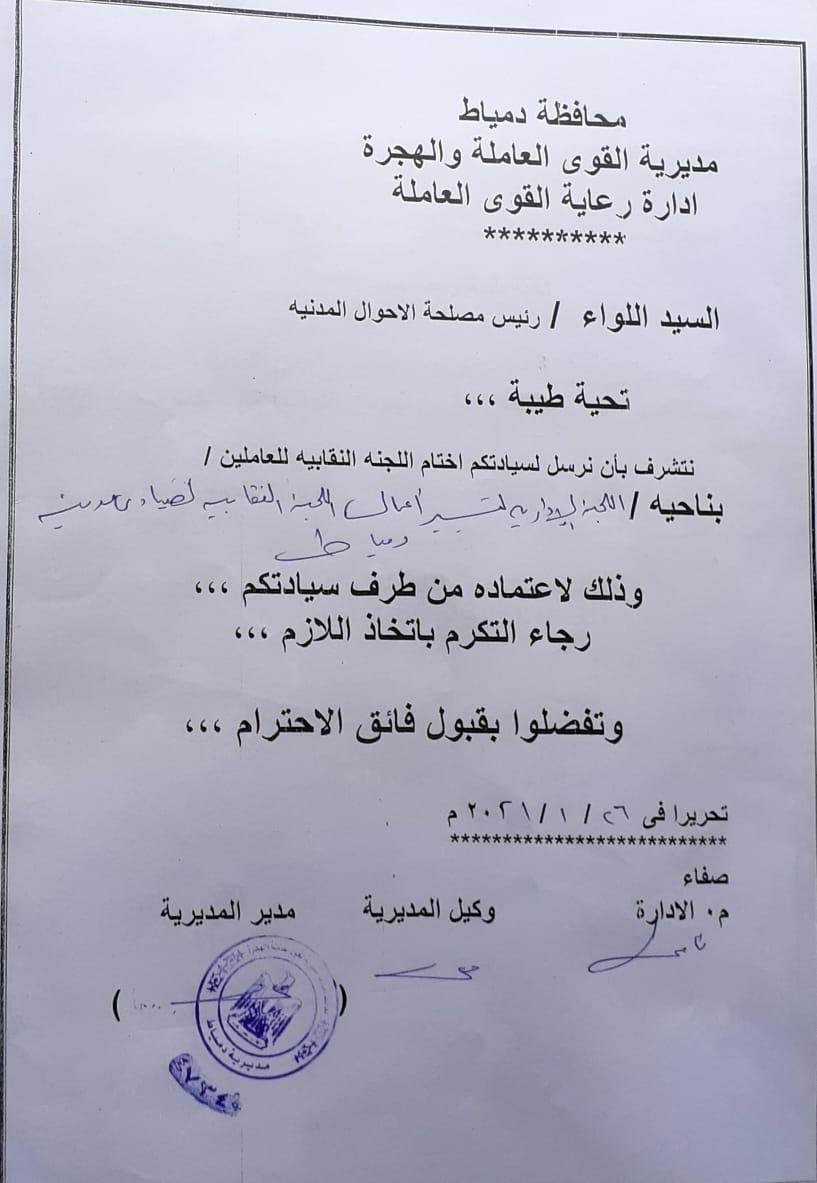 محافظة دمياط
مديرية القوى العاملة والهجرة
ادارة رعاية القوى العاملة
**********
السيد اللواء / رئيس مصلحة الاحوال المدنيه
تحية طيبة ،،،
نتشرف بأن نرسل لسيادتكم اختام اللجنه النقابيه للعاملين /
بناحيه / اللجنة الإدارية لتسيير أعمال اللجنة النقابيه لصيادى مدينة
دمياط
وذلك لاعتماده من طرف سيادتكم ،،،
رجاء التكرم باتخاذ اللازم ،،،
وتفضلوا بقبول فائق الاحترام ،،،
تحريرا فى ٢٦ / ١ / ٢٠٢١ م
**************************
صفاء
م٠ الادارة وكيل المديرية مدير المديرية
( )
مديرية دمياط